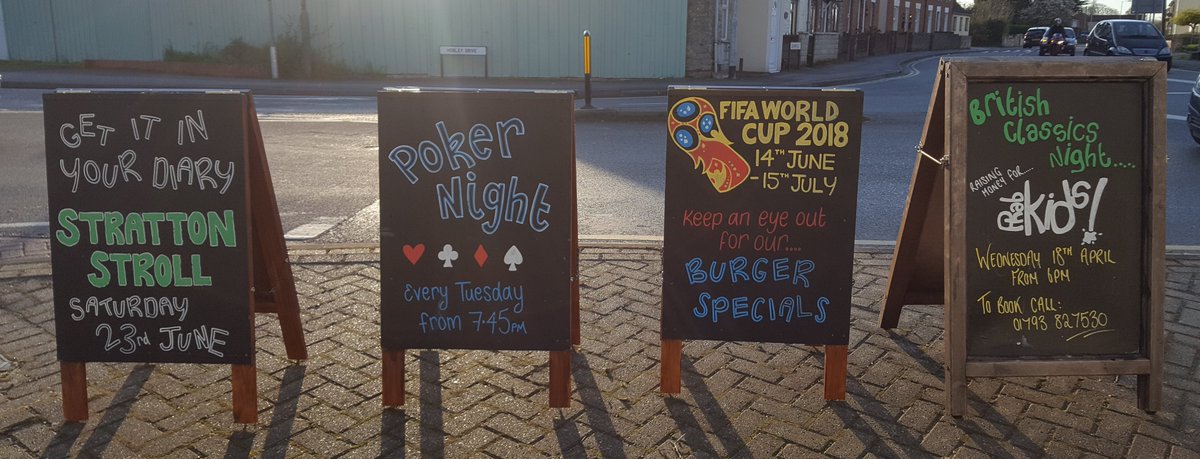 GET IT IN
YOUR DIARY
STRATTON
STROLL
SATURDAY
23rd JUNE
Poker
Night
Every Tuesday
from 7.45PM
FIFA WORLD
CUP 2018
14TH JUNE
- 15TH JULY
Keep an eye out
for our....
BURGER
SPECIALS
British
Classics
Night.....
RAISING
MONEY FOR...
Kids!
WEDNESDAY 18TH APRIL
FROM 6PM
TO BOOK CALL:
01793 827530